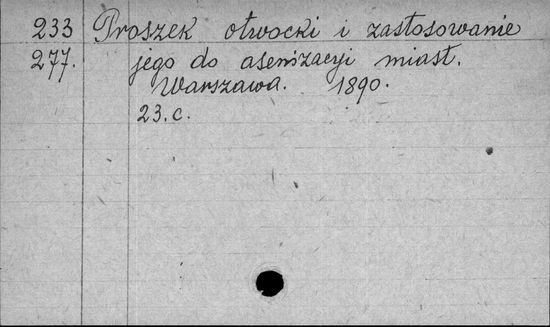 233 Proszek otwocki i zastosowanie
277. jego do asenizacyi miast.
Warszawa. 1890.
23. c.